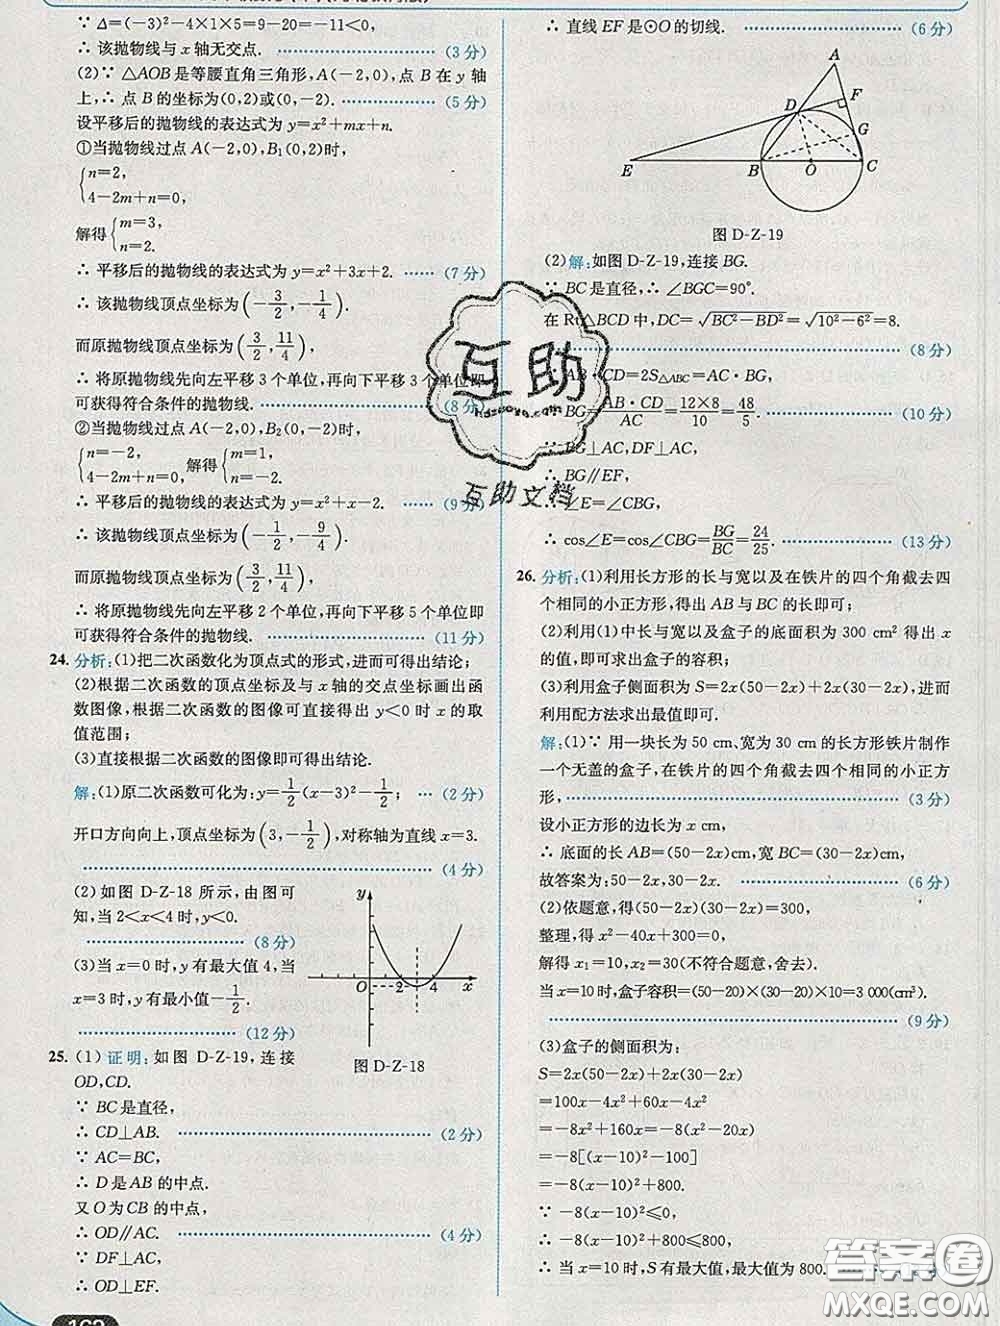 ∵ Δ=(-3)²-4×1×5=9-20=-11<0,
∴ 该抛物线与 x 轴无交点. (3 分)
(2)∵ △AOB 是等腰直角三角形, A(-2,0), 点 B 在 y 轴
上, ∴ 点 B 的坐标为(0,2)或(0,-2). (5 分)
设平移后的抛物线的表达式为 y=x²+mx+n.
①当抛物线过点 A(-2,0), B₁(0,2)时,
{n=2,
4-2m+n=0,
解得{m=3,
n=2.
∴ 平移后的抛物线的表达式为 y=x²+3x+2. (7 分)
∴ 该抛物线顶点坐标为(-3/2,-1/4).
而原抛物线顶点坐标为(3/2,11/4),
∴ 将原抛物线先向左平移 3 个单位,再向下平移 3 个单位即
可获得符合条件的抛物线. (8 分)
②当抛物线过点 A(-2,0), B₂(0,-2)时,
{n=-2,
4-2m+n=0, 解得{m=1,
n=-2.
∴ 平移后的抛物线的表达式为 y=x²+x-2. (9 分)
∴ 该抛物线顶点坐标为(-1/2,-9/4).
而原抛物线顶点坐标为(3/2,11/4),
∴ 将原抛物线先向左平移 2 个单位,再向下平移 5 个单位即
可获得符合条件的抛物线. (11 分)
24. 分析:(1)把二次函数化为顶点式的形式,进而可得出结论;
(2)根据二次函数的顶点坐标及与 x 轴的交点坐标画出函
数图像,根据二次函数的图像可直接得出 y<0 时 x 的取
值范围;
(3)直接根据二次函数的图像即可得出结论.
解:(1)原二次函数可化为:y=1/2(x-3)²-1/2; (2 分)
开口方向向上,顶点坐标为(3,-1/2),对称轴为直线 x=3.
(4 分)
(2)如图 D-Z-18 所示,由图可
知,当 2<x<4 时,y<0.
(8 分)
(3)当 x=0 时,y 有最大值 4,当
x=3 时,y 有最小值-1/2.
(12 分)
y
O 2 4 x
图 D-Z-18
25. (1)证明:如图 D-Z-19,连接
OD,CD.
∵ BC 是直径,
∴ CD⊥AB. (2 分)
∵ AC=BC,
∴ D 是 AB 的中点.
又 O 为 CB 的中点,
∴ OD∥AC. (4 分)
∵ DF⊥AC,
∴ OD⊥EF.
∴ 直线 EF 是⊙O 的切线. (6 分)
A
D F
G
E B O C
图 D-Z-19
(2)解:如图 D-Z-19,连接 BG.
∵ BC 是直径,∴ ∠BGC=90°.
在 Rt△BCD 中,DC=√BC²-BD²=√10²-6²=8.
(8 分)
CD=2S△ABC=AC·BG,
BG=AB·CD/AC=12×8/10=48/5. (10 分)
∵ BG⊥AC,DF⊥AC,
∴ BG∥EF,
∴ ∠E=∠CBG,
∴ cos∠E=cos∠CBG=BG/BC=24/25. (13 分)
26. 分析:(1)利用长方形的长与宽以及在铁片的四个角截去四
个相同的小正方形,得出 AB 与 BC 的长即可;
(2)利用(1)中长与宽以及盒子的底面积为 300 cm² 得出 x
的值,即可求出盒子的容积;
(3)利用盒子侧面积为 S=2x(50-2x)+2x(30-2x),进而
利用配方法求出最值即可.
解:(1)∵ 用一块长为 50 cm、宽为 30 cm 的长方形铁片制作
一个无盖的盒子,在铁片的四个角截去四个相同的小正方
形, (3 分)
设小正方形的边长为 x cm,
∴ 底面的长 AB=(50-2x)cm,宽 BC=(30-2x)cm,
故答案为:50-2x,30-2x. (6 分)
(2)依题意,得(50-2x)(30-2x)=300,
整理,得 x²-40x+300=0,
解得 x₁=10,x₂=30(不符合题意,舍去).
当 x=10 时,盒子容积=(50-20)×(30-20)×10=3 000(cm³).
(9 分)
(3)盒子的侧面积为:
S=2x(50-2x)+2x(30-2x)
=100x-4x²+60x-4x²
=-8x²+160x=-8(x²-20x)
=-8[(x-10)²-100]
=-8(x-10)²+800,
∵ -8(x-10)²≤0,
∴ -8(x-10)²+800≤800,
∴ 当 x=10 时,S 有最大值,最大值为 800.
互助
hdzoxa.com
互助文档
答案圈
MXQE.COM